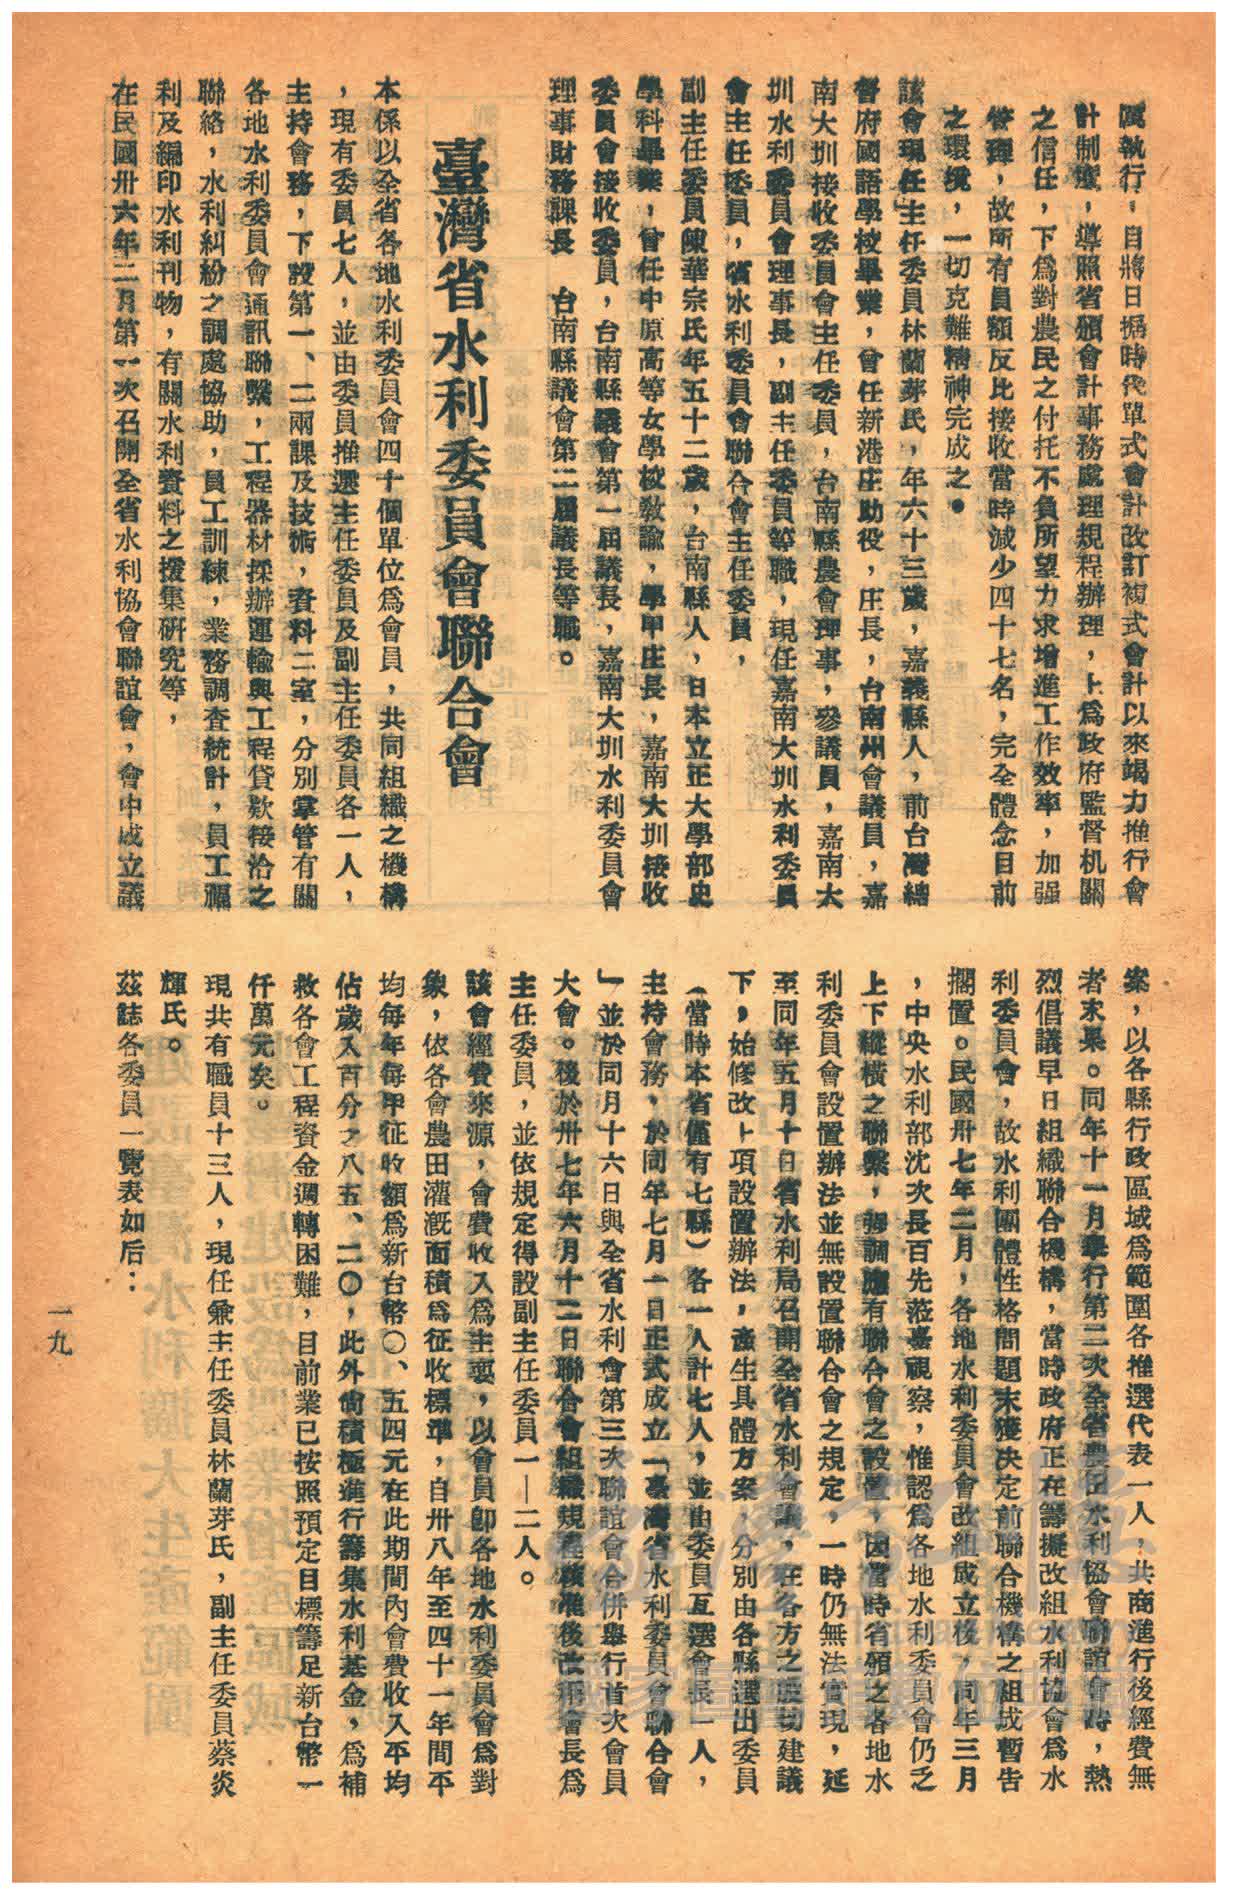 厲執行，自將日據時代單式會計改訂複式會計以來竭力推行會
計制度，遵照省頒會計事務處理規程辦理，上爲政府監督机關
之信任，下爲對農民之付托不負所望力求增進工作效率，加强
管理，故所有員額反比接收當時減少四十七名，完全體念目前
之環境，一切克難精神完成之。
該會現任主任委員林蘭芽氏，年六十三歲，嘉義縣人，前台灣總
督府國語學校畢業，曾任新港庄助役，庄長，台南州會議員，嘉
南大圳接收委員會主任委員，台南縣農會理事，參議員，嘉南大
圳水利委員會理事長，副主任委員等職，現任嘉南大圳水利委員
會主任委員，省水利委員會聯合會主任委員，
副主任委員陳華宗氏年五十二歲，台南縣人，日本立正大學部史
學科畢業，曾任中原高等女學校敎諭，學甲庄長，嘉南大圳接收
委員會接收委員，台南縣議會第一屆議長，嘉南大圳水利委員會
理事財務課長　台南縣議會第二屆議長等職。
臺灣省水利委員會聯合會
本係以全省各地水利委員會四十個單位爲會員，共同組織之機構
，現有委員七人，並由委員推選主任委員及副主任委員各一人，
主持會務，下設第一、二兩課及技術，資料二室，分別掌管有關
各地水利委員會通訊聯繫，工程器材採辦運輸與工程貸款接洽之
聯絡，水利糾紛之調處協助，員工訓練，業務調査統計，員工福
利及編印水利刊物，有關水利資料之搜集硏究等，
在民國卅六年二月第一次召開全省水利協會聯誼會，會中成立議
案，以各縣行政區域爲範圍各推選代表一人，共商進行後經費無
者末果。同年十一月舉行第二次全省農田水利協會聯誼會時，熱
烈倡議早日組織聯合機構，當時政府正在籌擬改組水利協會爲水
利委員會，故水利團體性格問題末獲決定前聯合機構之組成暫告
擱置。民國卅七年二月，各地水利委員會改組成立後，同年三月
，中央水利部沈次長百先蒞嘉視察，惟認爲各地水利委員會仍乏
上下縱橫之聯繫，強調應有聯合會之設置，因當時省頒之各地水
利委員會設置辦法並無設置聯合會之規定，一時仍無法實現，延
至同年五月十日省水利局召開全省水利會議，在各方之慼切建議
下，始修改上項設置辦法，產生具體方案，分別由各縣選出委員
（當時本省僅有七縣）各一人計七人，並由委員互選會長一人，
主持會務，於同年七月一日正式成立「臺灣省水利委員會聯合會
」並於同月十六日與全省水利會第三次聯誼會合併舉行首次會員
大會。後於卅七年六月十二日聯合會組織規程核准後改稱會長爲
主任委員，並依規定得設副主任委員一—二人。
該會經費來源，會費收入爲主要，以會員卽各地水利委員會爲對
象，依各會農田灌漑面積爲征收標準，自卅八年至四十一年間平
均每年每甲征收額爲新台幣〇、五四元在此期間內會費收入平均
佔歲入百分之八五、二〇，此外尙積極進行籌集水利基金，爲補
救各會工程資金週轉困難，目前業已按照預定目標籌足新台幣一
仟萬元矣。
現共有職員十三人，現任兼主任委員林蘭芽氏，副主任委員蔡炎
輝氏。
茲誌各委員一覽表如后：
一九
國家圖書館數位典藏